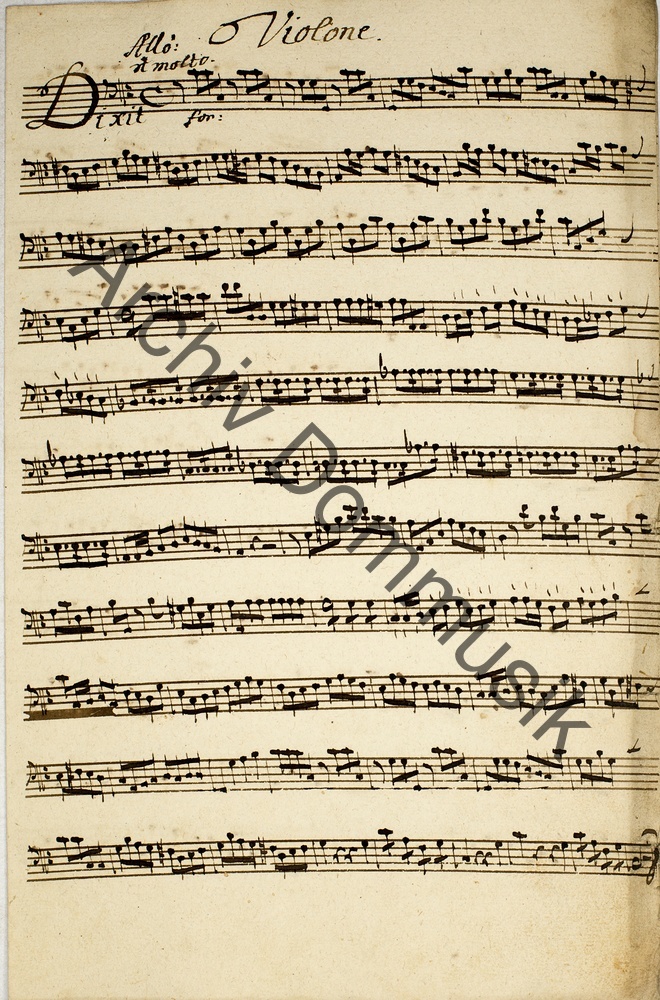 Violone.
Allo:
molto.
Dixit for:
Archiv Dommusik